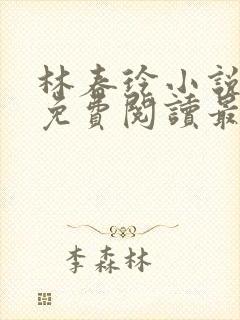 林春徐小說
免費閱讀最
李森林